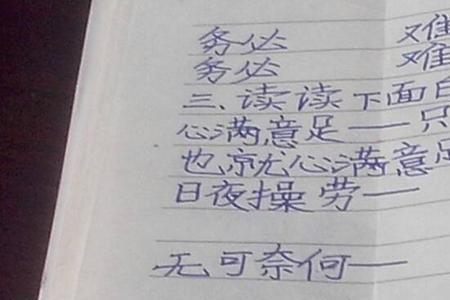 务必 难
务必 难
三、读读下面
心满意足——只
也就心满意足
日夜操劳——
无可奈何——